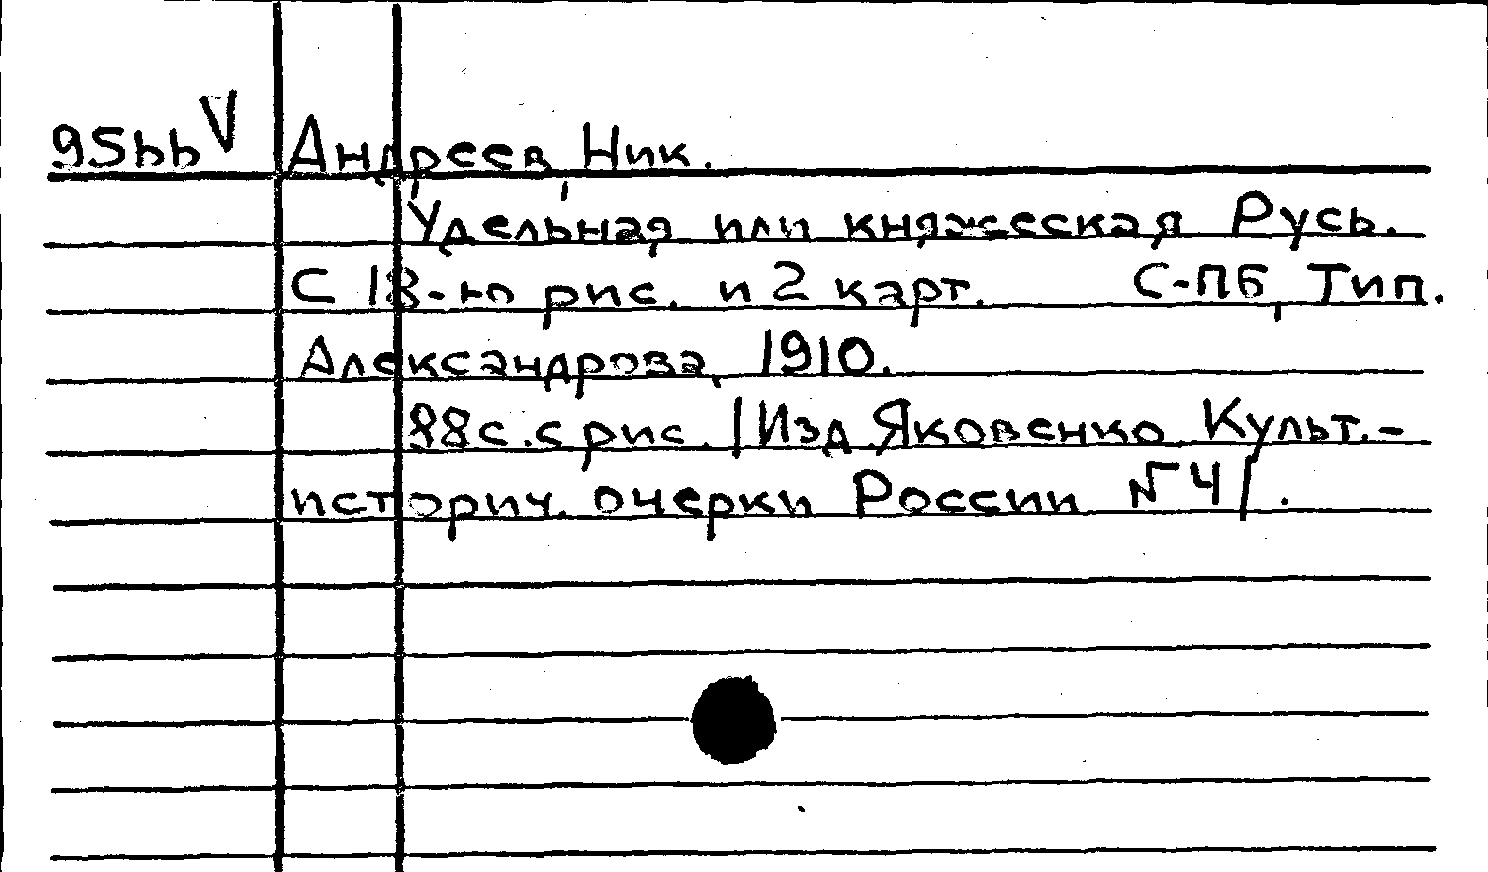 95bb V Андреев, Ник.
Удельная или княжеская Русь.
С 18-ю рис. и 2 карт. С-ПБ, Тип.
Александрова, 1910.
88с. с рис. /Изд. Яковенко Культ.-
историч. очерки России №4/.